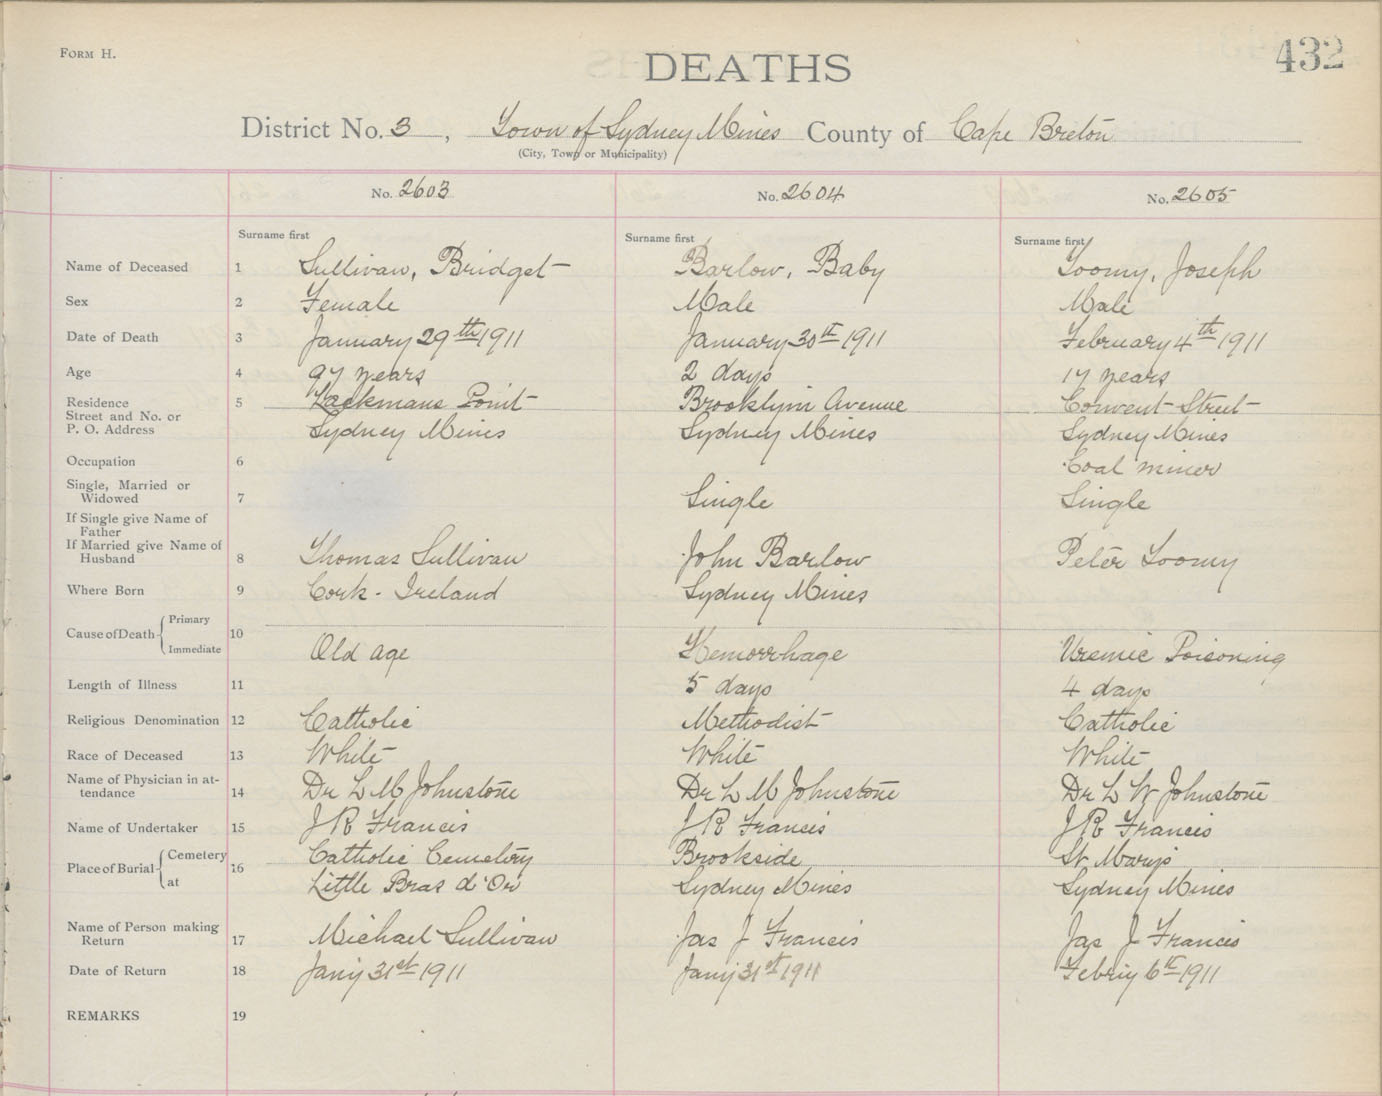 FORM H.
DEATHS
432
District No. 3, Town of Sydney Mines County of Cape Breton
(City, Town or Municipality)
No. 2603 No. 2604 No. 2605
Surname first Surname first Surname first
Name of Deceased 1 Sullivan, Bridget Barlow, Baby Toomy, Joseph
Sex 2 Female Male Male
Date of Death 3 January 29th 1911 January 30th 1911 February 4th 1911
Age 4 97 years 2 days 17 years
Residence 5 Point Brooklyn Avenue Convent Street
Street and No. or
P. O. Address Sydney Mines Sydney Mines Sydney Mines
Occupation 6 Coal miner
Single, Married or
Widowed 7 Single Single
If Single give Name of
Father
If Married give Name of
Husband 8 Thomas Sullivan John Barlow Peter Toomy
Where Born 9 Cork - Ireland Sydney Mines
Cause of Death Primary 10
Immediate Old age Hemorrhage Uremic Poisoning
Length of Illness 11 5 days 4 days
Religious Denomination 12 Catholic Methodist Catholic
Race of Deceased 13 White White White
Name of Physician in at-
tendance 14 Dr L M Johnstone Dr L M Johnstone Dr L W Johnstone
Name of Undertaker 15 J R Francis J R Francis J R Francis
Place of Burial Cemetery 16 Catholic Cemetery Brookside St Marys
at Little Bras d'Or Sydney Mines Sydney Mines
Name of Person making
Return 17 Michael Sullivan Jas J Francis Jas J Francis
Date of Return 18 Jany 31st 1911 Jany 31st 1911 Febriy 6th 1911
REMARKS 19